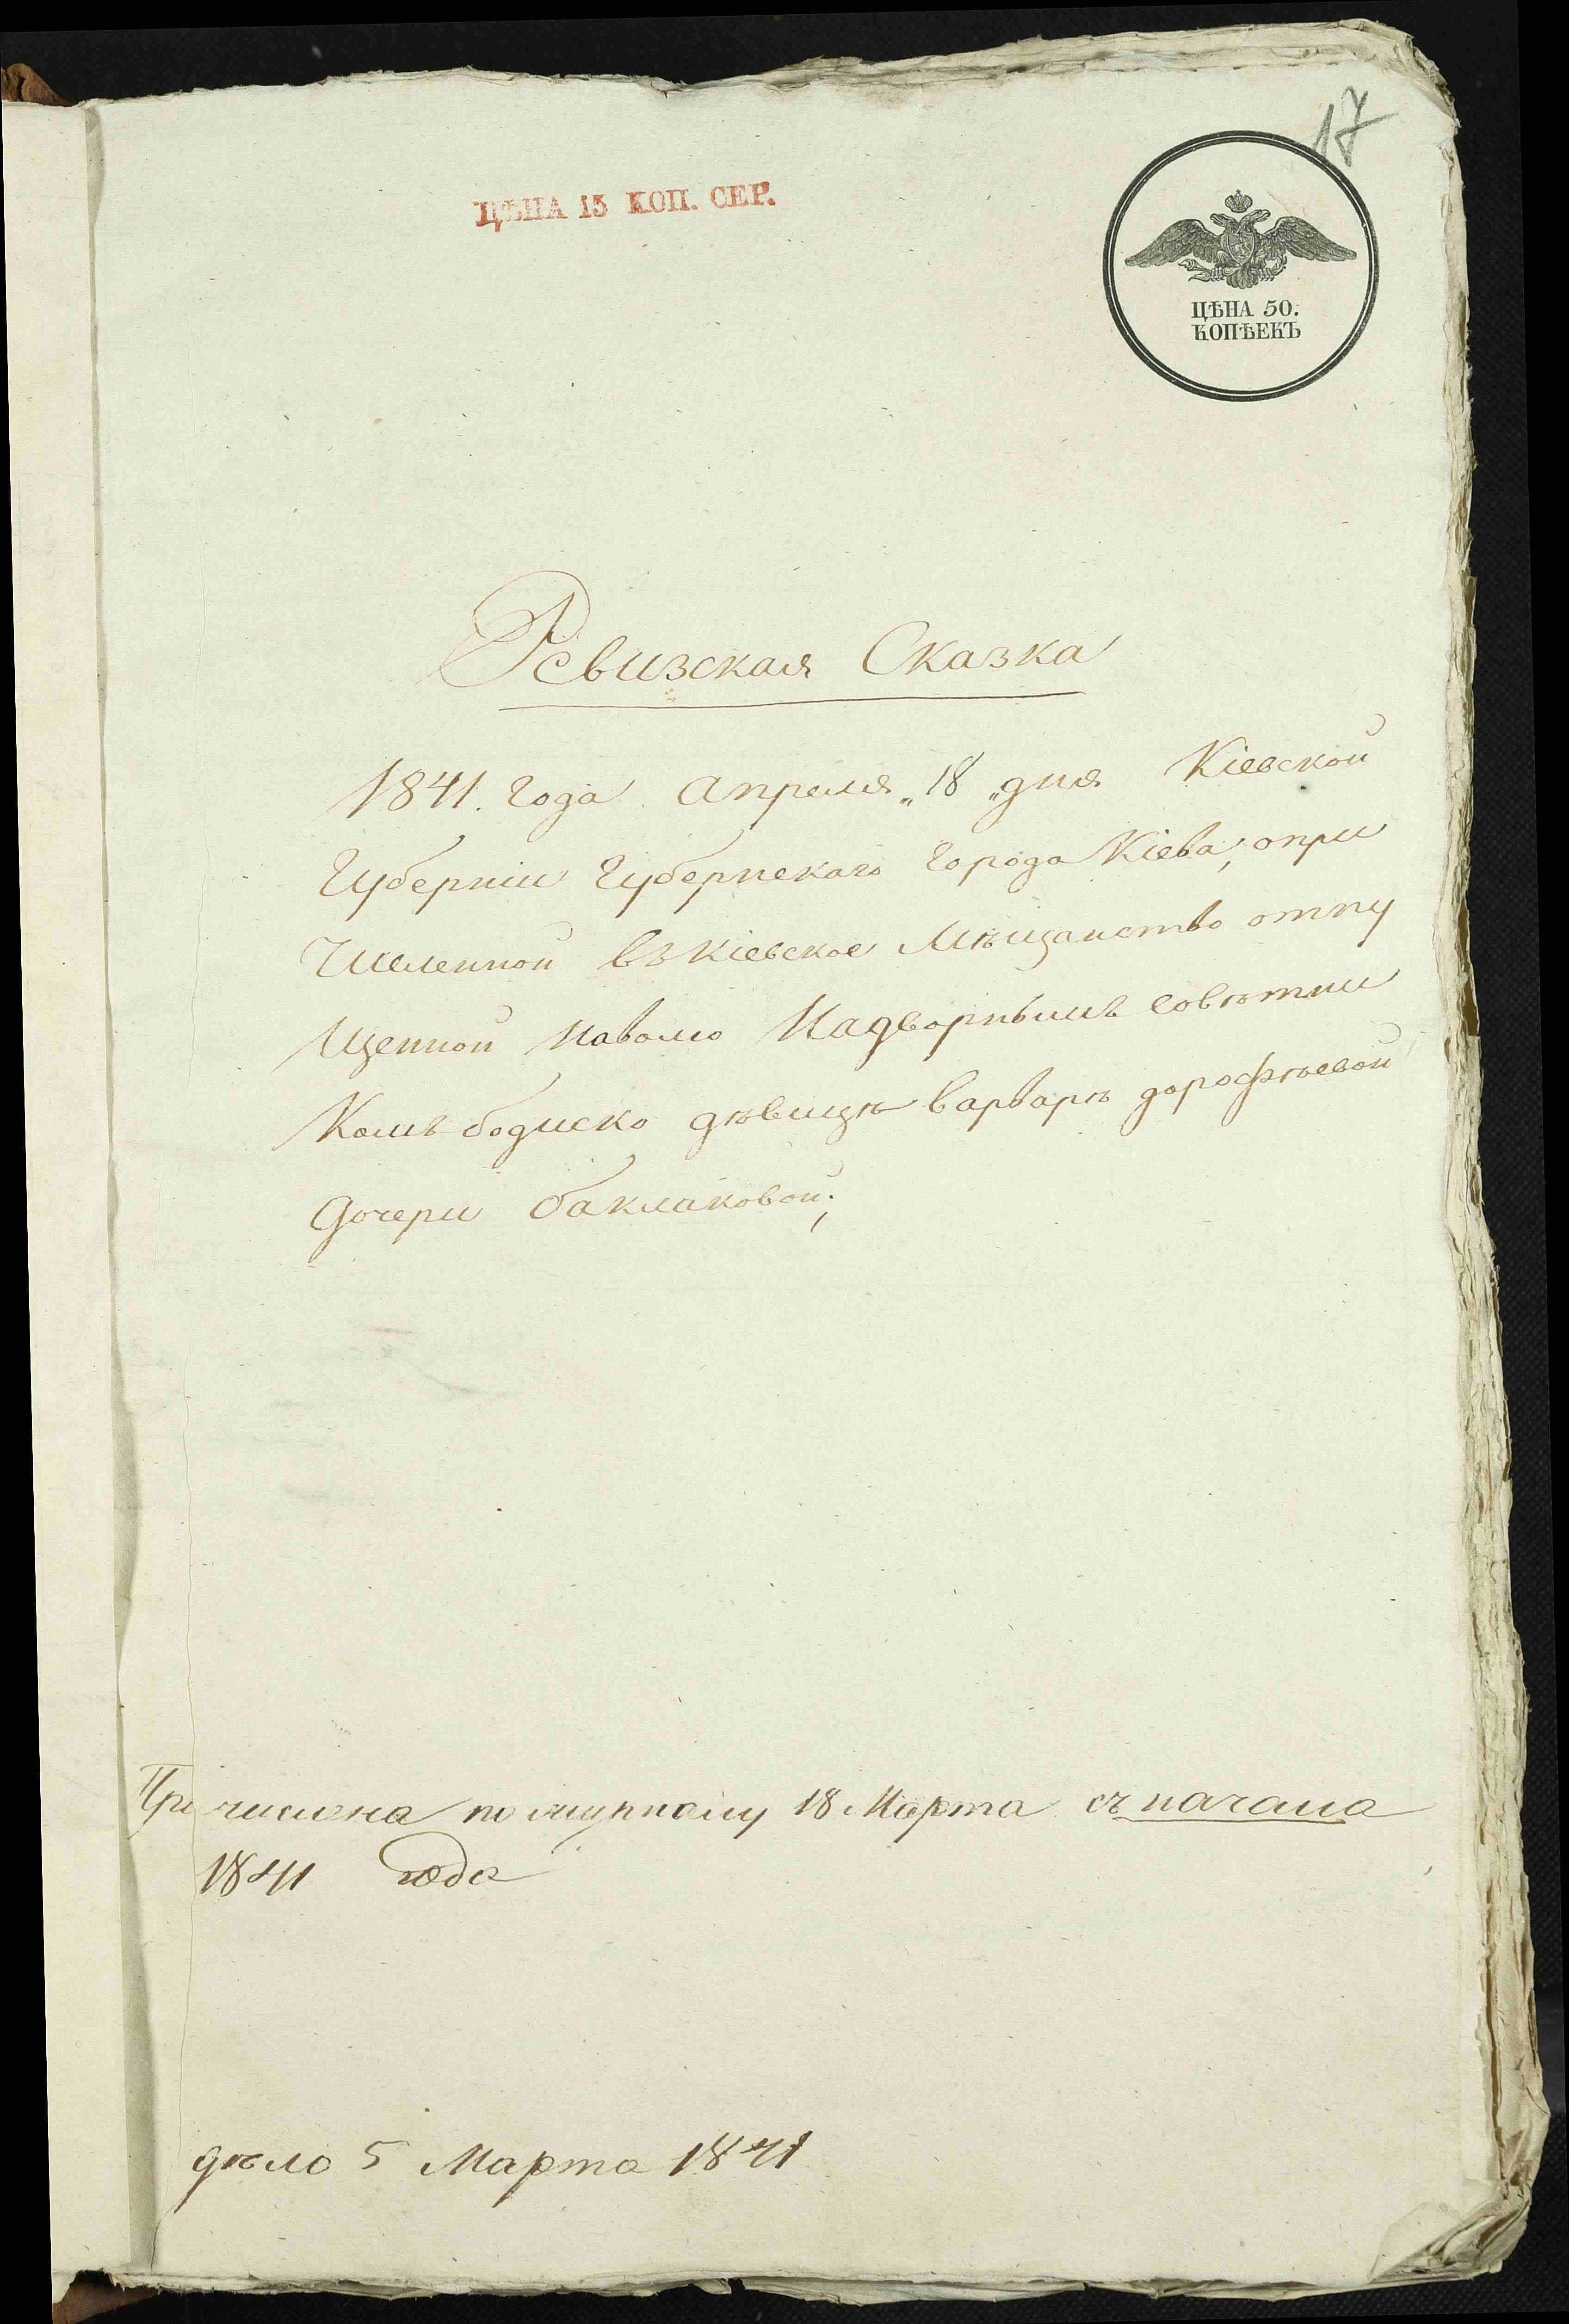 17
ЦѢНА 15 КОП. СЕР.
ЦѢНА 50.
КОПѢЕКЪ
Ревизская Сказка
1841. Года Апреля „18 „дня Кіевской
Губерніи Губернскаго Города Кіева, опри
Численной въ Кіевское Мѣщанство отпу
Щенной наволю Надворнымъ совѣтни
Комъ бодиско дѣвицѣ варварѣ дорофѣевой
Дочери баклаковой;
Причислена по 18 Марта съ начала
1841 года
дѣло 5 Марта 1841